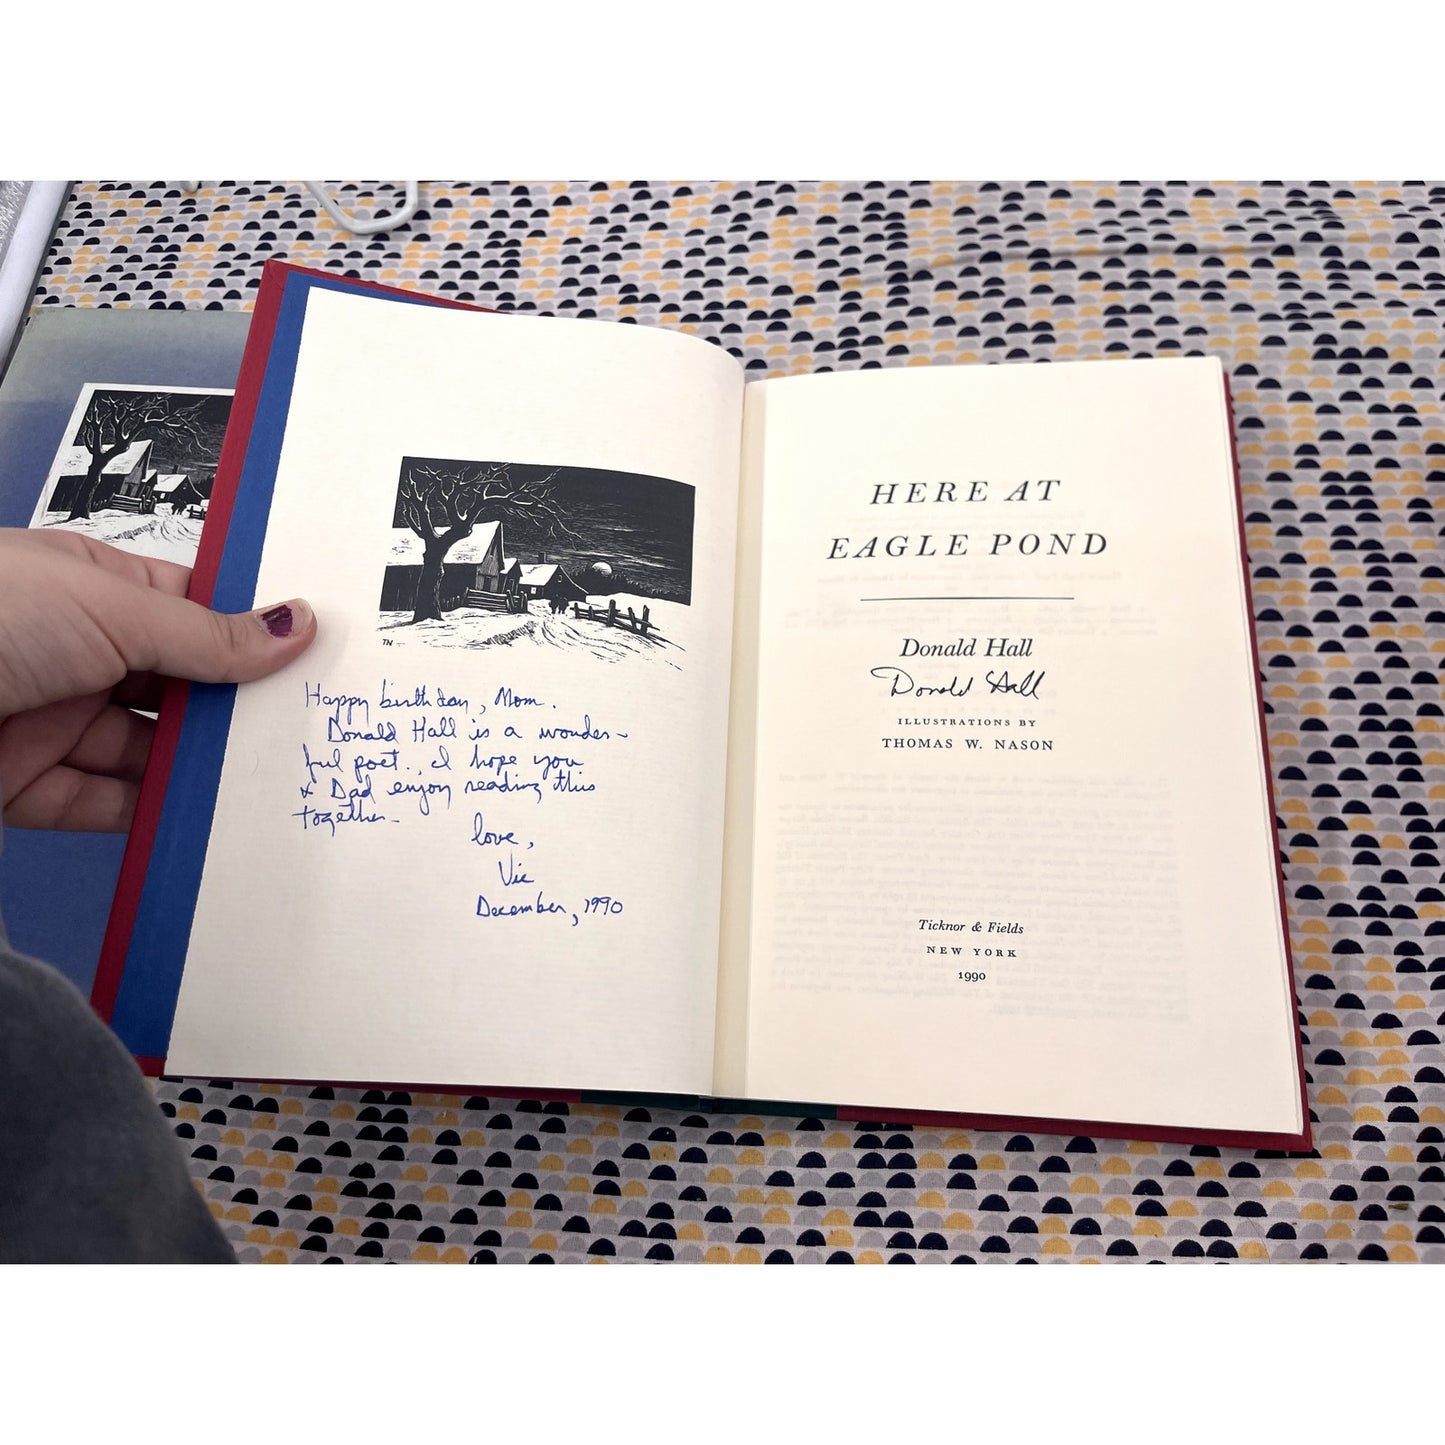 TN
Happy birthday, Mom.
Donald Hall is a wonder-
ful poet. I hope you
& Dad enjoy reading this
together.
love,
Vic
December, 1990
HERE AT
EAGLE POND
Donald Hall
Donald Hall
ILLUSTRATIONS BY
THOMAS W. NASON
Ticknor & Fields
NEW YORK
1990